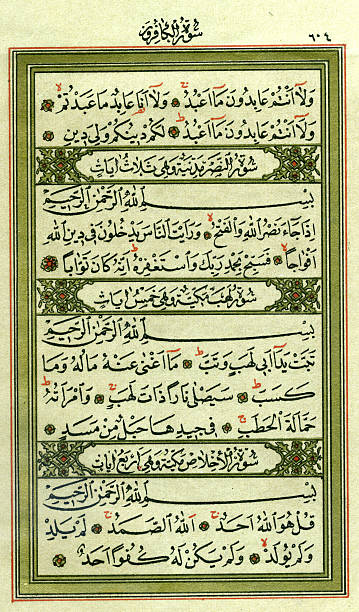 سورة الكافرون ٦٠٤
وَلَا أَنْتُمْ عَابِدُونَ مَا أَعْبُدُ ۞ وَلَا أَنَا عَابِدٌ مَا عَبَدْتُمْ ۞
وَلَا أَنْتُمْ عَابِدُونَ مَا أَعْبُدُ ۞ لَكُمْ دِينُكُمْ وَلِيَ دِينِ ۞
سورة النصر مدنية وهي ثلاث آيات
بِسْمِ اللهِ الرَّحْمٰنِ الرَّحِيمِ
إِذَا جَاءَ نَصْرُ اللهِ وَالْفَتْحُ ۞ وَرَأَيْتَ النَّاسَ يَدْخُلُونَ فِي دِينِ اللهِ
أَفْوَاجًا ۞ فَسَبِّحْ بِحَمْدِ رَبِّكَ وَاسْتَغْفِرْهُ إِنَّهُ كَانَ تَوَّابًا ۞
سورة لهب مكية وهي خمس آيات
بِسْمِ اللهِ الرَّحْمٰنِ الرَّحِيمِ
تَبَّتْ يَدَا أَبِي لَهَبٍ وَتَبَّ ۞ مَا أَغْنَى عَنْهُ مَالُهُ وَمَا
كَسَبَ ۞ سَيَصْلَى نَارًا ذَاتَ لَهَبٍ ۞ وَامْرَأَتُهُ
حَمَّالَةَ الْحَطَبِ ۞ فِي جِيدِهَا حَبْلٌ مِنْ مَسَدٍ ۞
سورة الإخلاص مكية وهي أربع آيات
بِسْمِ اللهِ الرَّحْمٰنِ الرَّحِيمِ
قُلْ هُوَ اللهُ أَحَدٌ ۞ اللهُ الصَّمَدُ ۞ لَمْ يَلِدْ
وَلَمْ يُولَدْ ۞ وَلَمْ يَكُنْ لَهُ كُفُوًا أَحَدٌ ۞